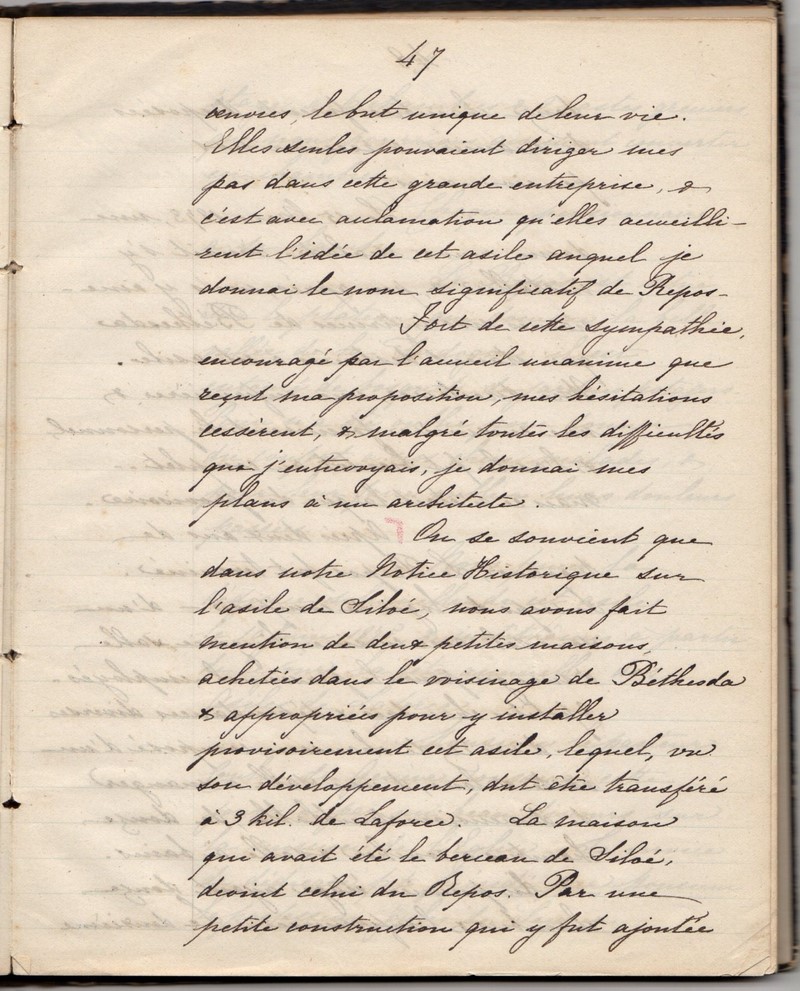 47
œuvres, le but unique de leur vie.
Elles seules pouvaient diriger mes
pas dans cette grande entreprise, &
c'est avec acclamation qu'elles accueilli-
rent l'idée de cet asile auquel je
donnai le nom significatif de Repos-
Fort de cette sympathie,
encouragé par l'accueil unanime que
reçut ma proposition, mes hésitations
cessèrent, & malgré toutes les difficultés
que j'entrevoyais, je donnai mes
plans à un architecte.
On se souvient que
dans notre Notice Historique sur
l'asile de Siloé, nous avons fait
mention de deux petites maisons,
achetées dans le voisinage de Béthesda
& appropriées pour y installer
provisoirement cet asile, lequel, vu
son développement, dut être transféré
à 3 kil. de Laforce. La maison
qui avait été le berceau de Siloé,
devint celui du Repos. Par une
petite construction qui y fut ajoutée